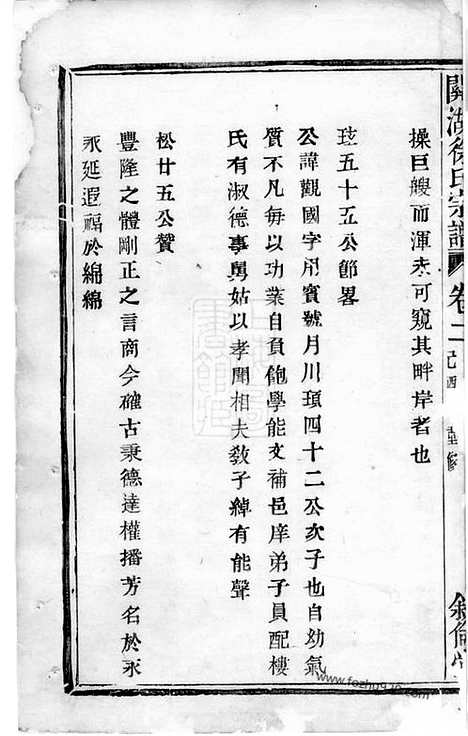 闞湖徐氏宗譜 卷二 己酉 重修 敘倫堂
操巨艘而渾未可窺其畔岸者也
珐五十五公節畧
公諱觀國字用賓號月川頊四十二公次子也自幼氣
質不凡每以功業自負飽學能文補邑庠弟子員配樓
氏有淑德事舅姑以孝聞相夫敎子綽有能聲
松廿五公贊
豐隆之體剛正之言商今確古秉德達權播芳名於永
永延遐福於綿綿
www.fozhu920.com